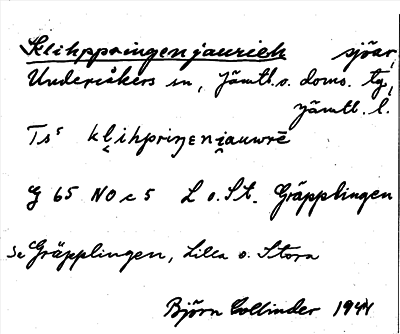 Klihppringenjaurieh sjöar,
Undersåkers sn, Jämtl. o. doms. tg,
Jämtl. l.
Ts⁵ kli̯hpriŋɛni̯auwrē
G 65 NO c 5 L o. St. Gräpplingen
Se Gräpplingen, Lilla o. Stora
Björn Collinder 1944